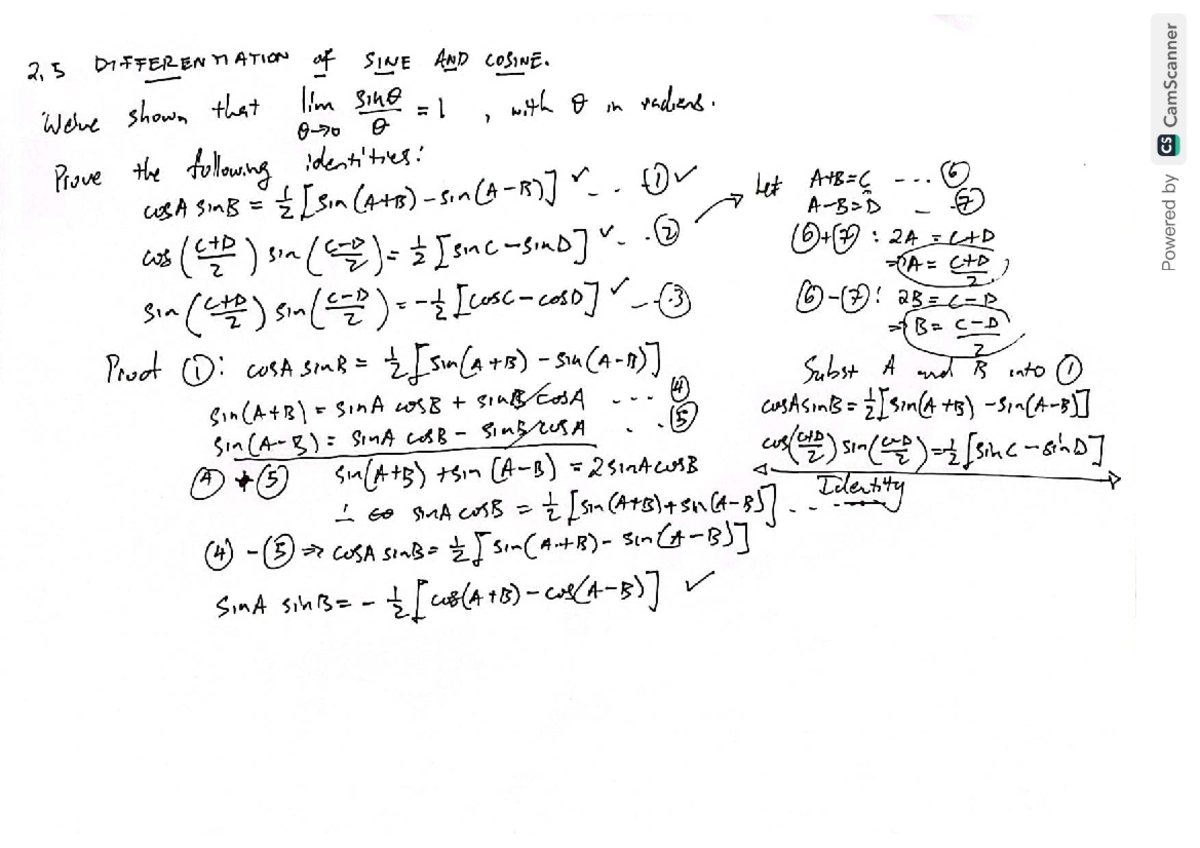 2.5 DIFFERENTIATION of SINE AND COSINE.
We've shown that lim θ→0 sinθ/θ = 1, with θ in radians.
Prove the following identities:
cosA sinB = 1/2 [sin(A+B) - sin(A-B)] ✓ -- . ① ✓
cos((C+D)/2) sin((C-D)/2) = 1/2 [sinC - sinD] ✓ - . ②
sin((C+D)/2) sin((C-D)/2) = -1/2 [cosC - cosD] ✓ -- ③
Proof ①: cosA sinB = 1/2 [sin(A+B) - sin(A-B)]
sin(A+B) = sinA cosB + sinB cosA --- ④
sin(A-B) = sinA cosB - sinB cosA . . ⑤
④ + ⑤ sin(A+B) + sin(A-B) = 2sinA cosB
sinA cosB = 1/2 [sin(A+B) + sin(A-B)] . . ----
④ - ⑤ ⇒ cosA sinB = 1/2 [sin(A+B) - sin(A-B)]
SinA sinB = - 1/2 [cos(A+B) - cos(A-B)] ✓
→ Let A+B=C --- ⑥
A-B=D - ⑦
⑥+⑦ : 2A = C+D
⇒ A = (C+D)/2
⑥-⑦: 2B = C-D
⇒ B = (C-D)/2
Subst A and B into ①
cosA sinB = 1/2 [sin(A+B) - sin(A-B)]
cos((C+D)/2) sin((C-D)/2) = 1/2 [sinC - sinD]
Identity
Powered by CS CamScanner